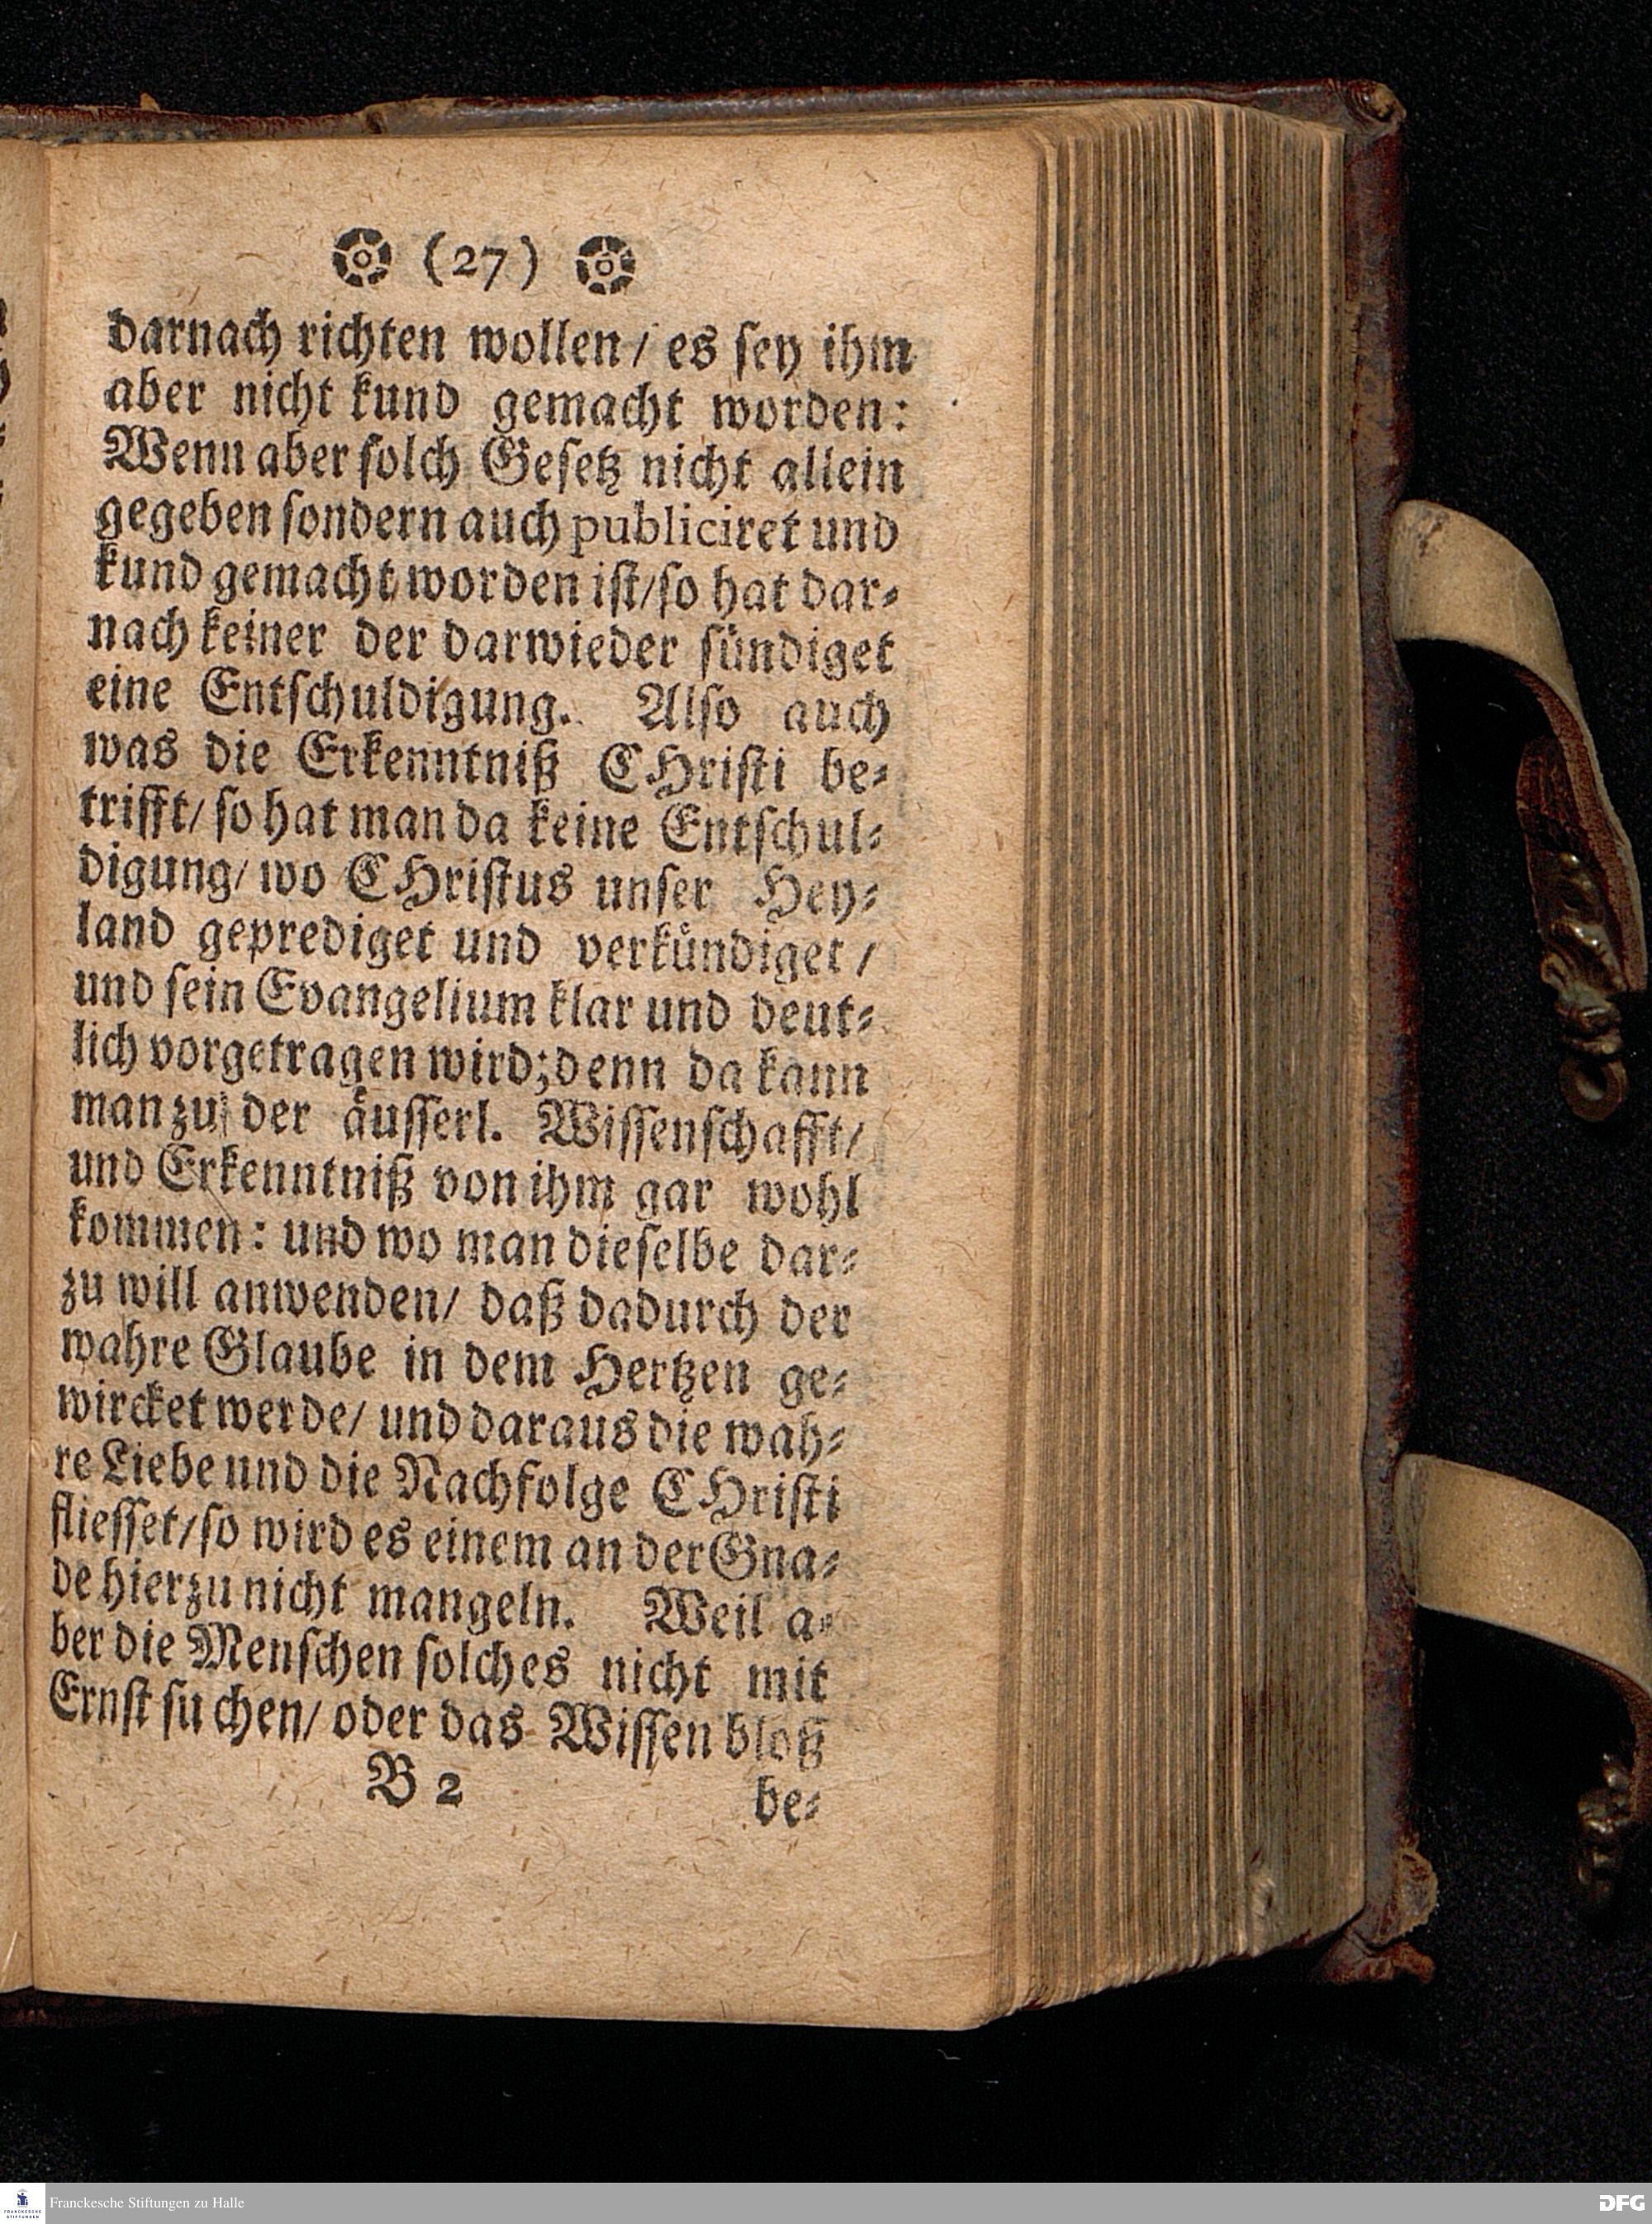 (27)
darnach richten wollen/ es sey ihm
aber nicht kund gemacht worden:
Wenn aber solch Gesetz nicht allein
gegeben sondern auch publiciret und
kund gemacht worden ist/so hat dar⸗
nach keiner der darwieder sündiget
eine Entschuldigung. Also auch
was die Erkenntniß CHristi be⸗
trifft/ so hat man da keine Entschul⸗
digung/ wo CHristus unser Hey⸗
land geprediget und verkündiget /
und sein Evangelium klar und deut⸗
lich vorgetragen wird; denn da kann
man zu der äusserl. Wissenschafft/
und Erkenntniß von ihm gar wohl
kommen: und wo man dieselbe dar⸗
zu will anwenden/ daß dadurch der
wahre Glaube in dem Hertzen ge⸗
wircket werde/ und daraus die wah⸗
re Liebe und die Nachfolge CHristi
fliesset/so wird es einem an der Gna⸗
de hierzu nicht mangeln. Weil a⸗
ber die Menschen solches nicht mit
Ernst su chen/ oder das Wissen bloß
B 2 be⸗
Franckesche Stiftungen zu Halle
FRANCKESCHE STIFTUNGEN
DFG